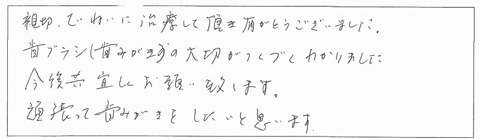 親切、ていねいに治療して頂き有がとうございました。
歯ブラシ(歯みがき)の大切がつくづくわかりました
今後共宜しくお願い致します。
頑張って歯みがきをしたいと思います。